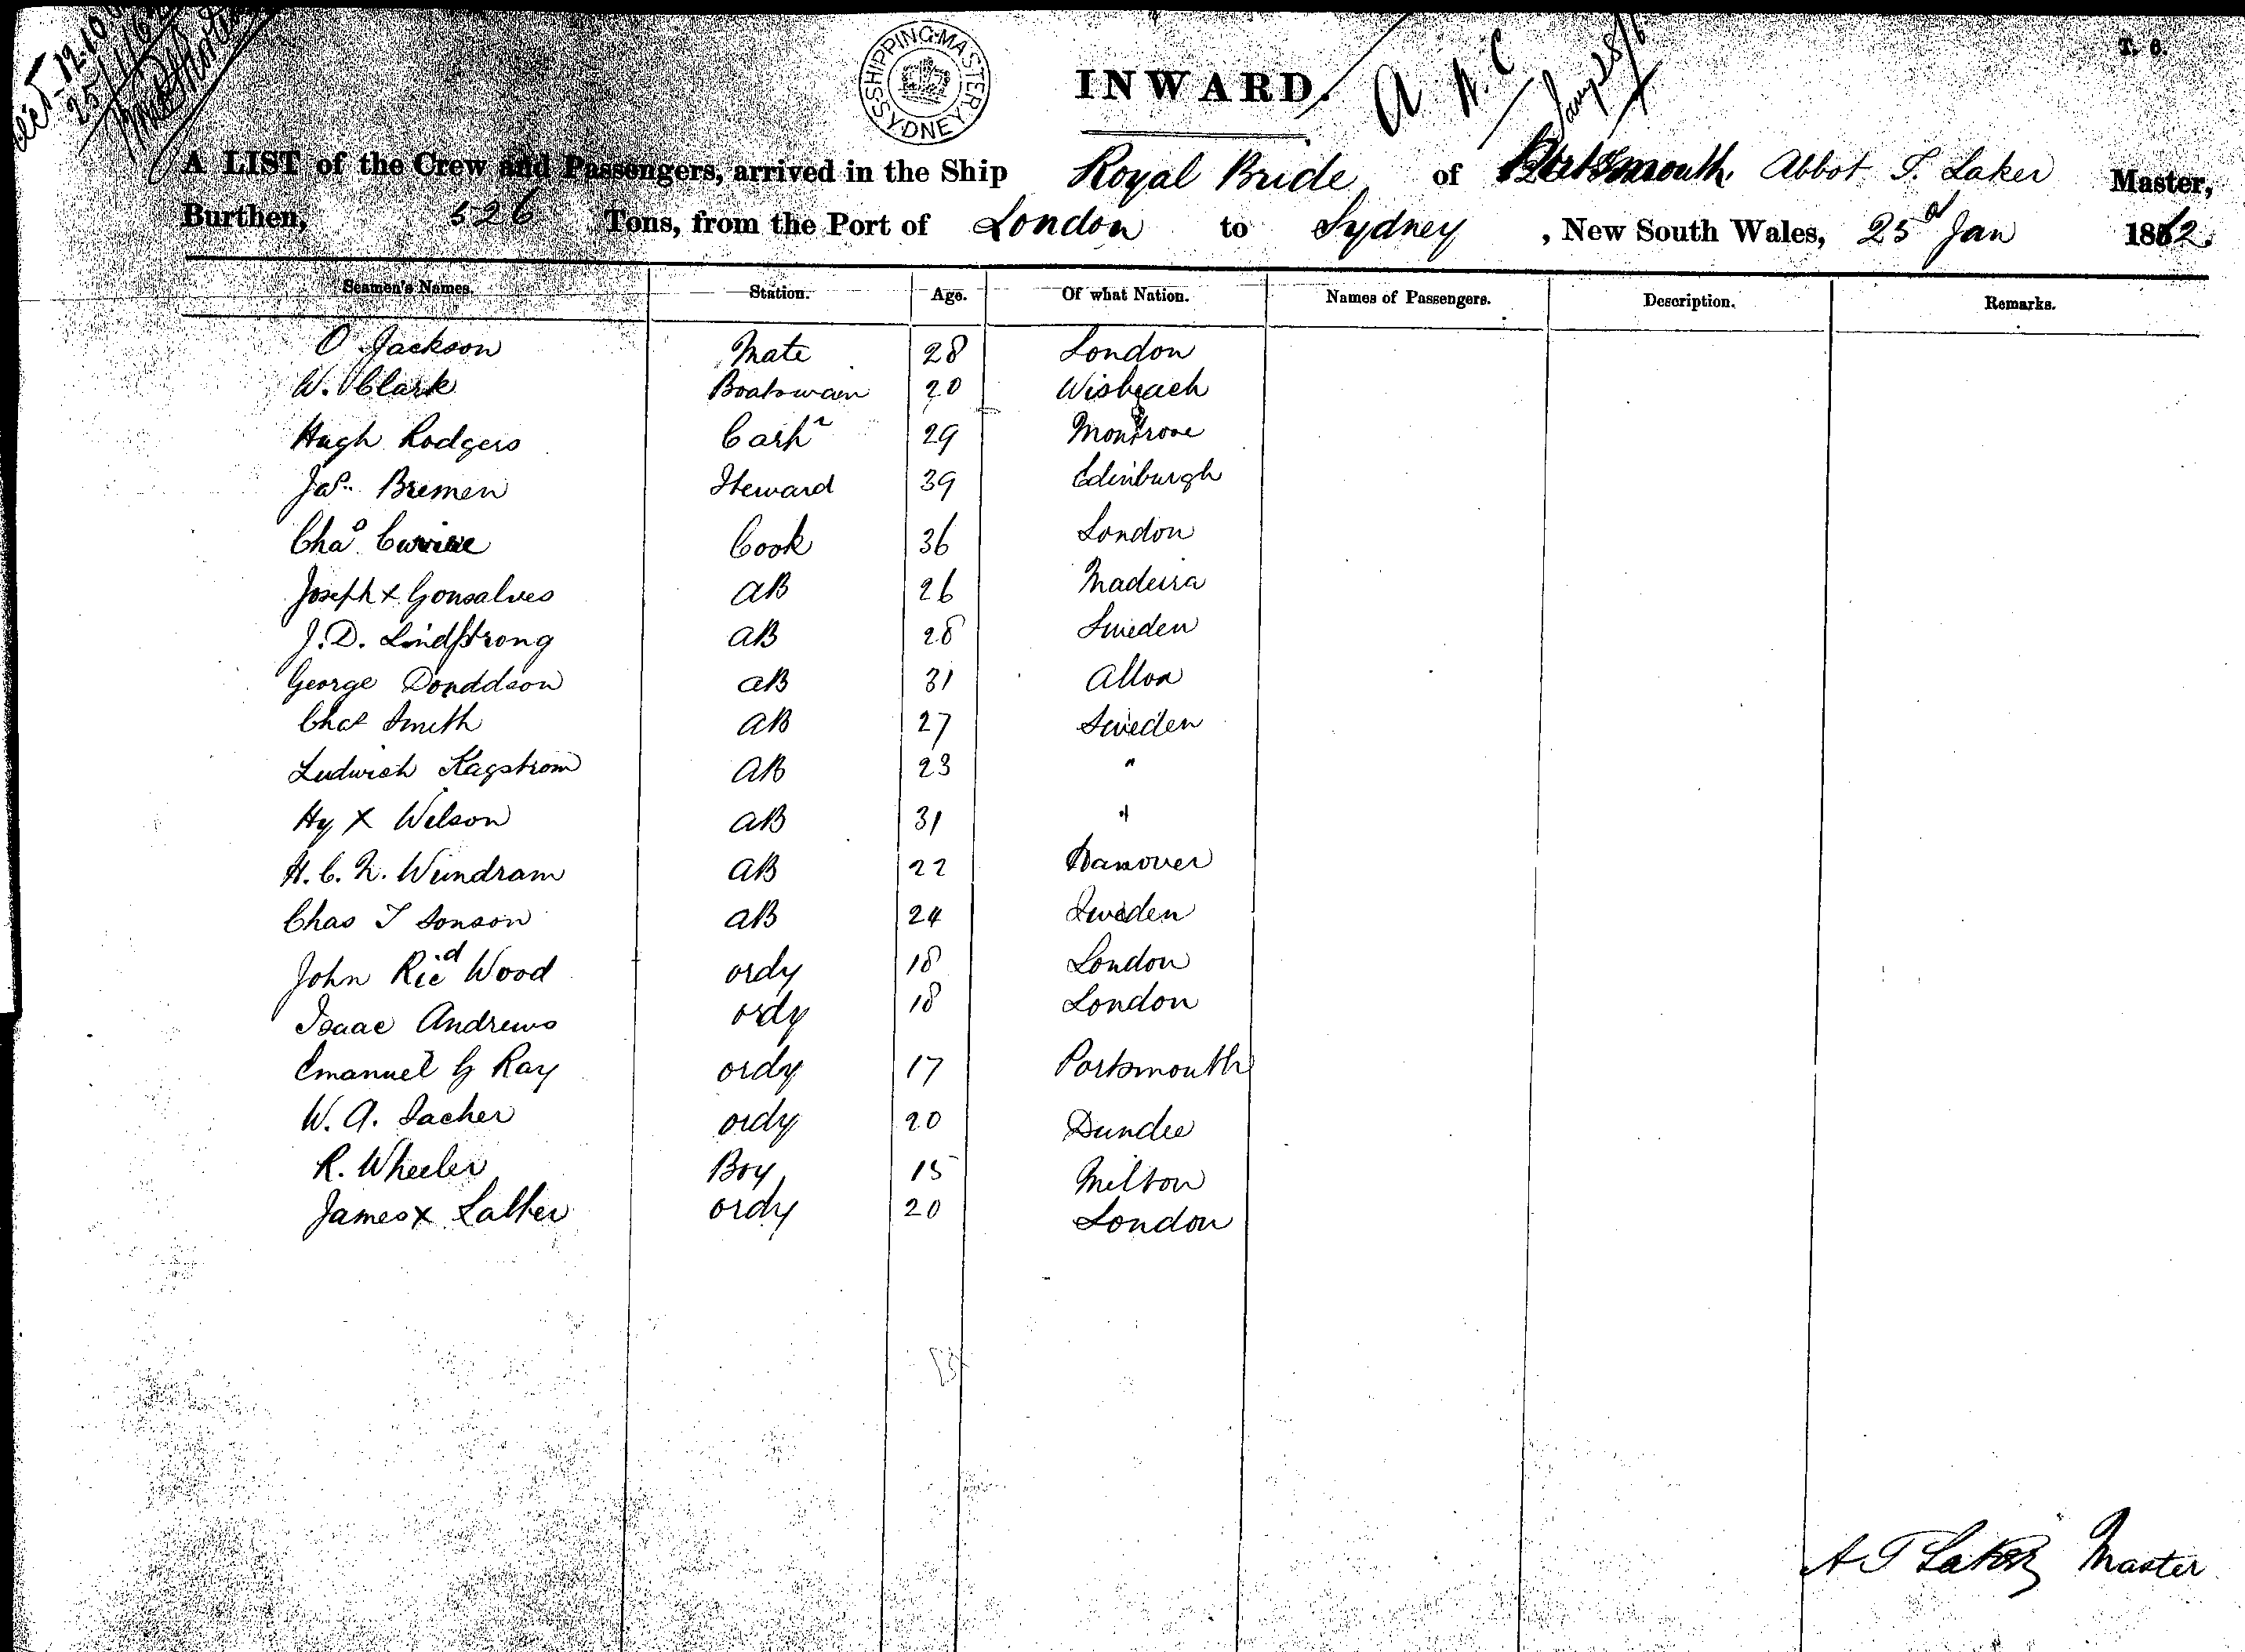 T. 6.
SHIPPING MASTER SYDNEY
INWARD.
A LIST of the Crew and Passengers, arrived in the Ship Royal Bride of Portsmouth, Abbot T. Laker Master,
Burthen, 526 Tons, from the Port of London to Sydney , New South Wales, 25th Jan 1862.
Seamen's Names. Station. Age. Of what Nation. Names of Passengers. Description. Remarks.
O Jackson Mate 28 London
W. Clark Boatswain 20 Wisbeach
Hugh Rodgers Carpr 29 Montrose
Jas. Bremen Steward 39 Edinburgh
Chas Cook 36 London
Joseph x Gonsalves AB 26 Madeira
J. D. Lindstrong AB 28 Sweden
George Donddson AB 31 Alloa
Chas Smith AB 27 Sweden
Ludwich Kagstrom AB 23 "
Hy X Wilson AB 31 "
H. C. N. Wundram AB 22 Hanover
Chas T Sonson AB 24 Sweden
John Ricd Wood ordy 18 London
Isaac Andrews ordy 18 London
Emanuel G Ray ordy 17 Portsmouth
W. A. Sacher ordy 20 Dundee
R. Wheeler Boy 15 Milton
James x Latter ordy 20 London
A T Laker Master